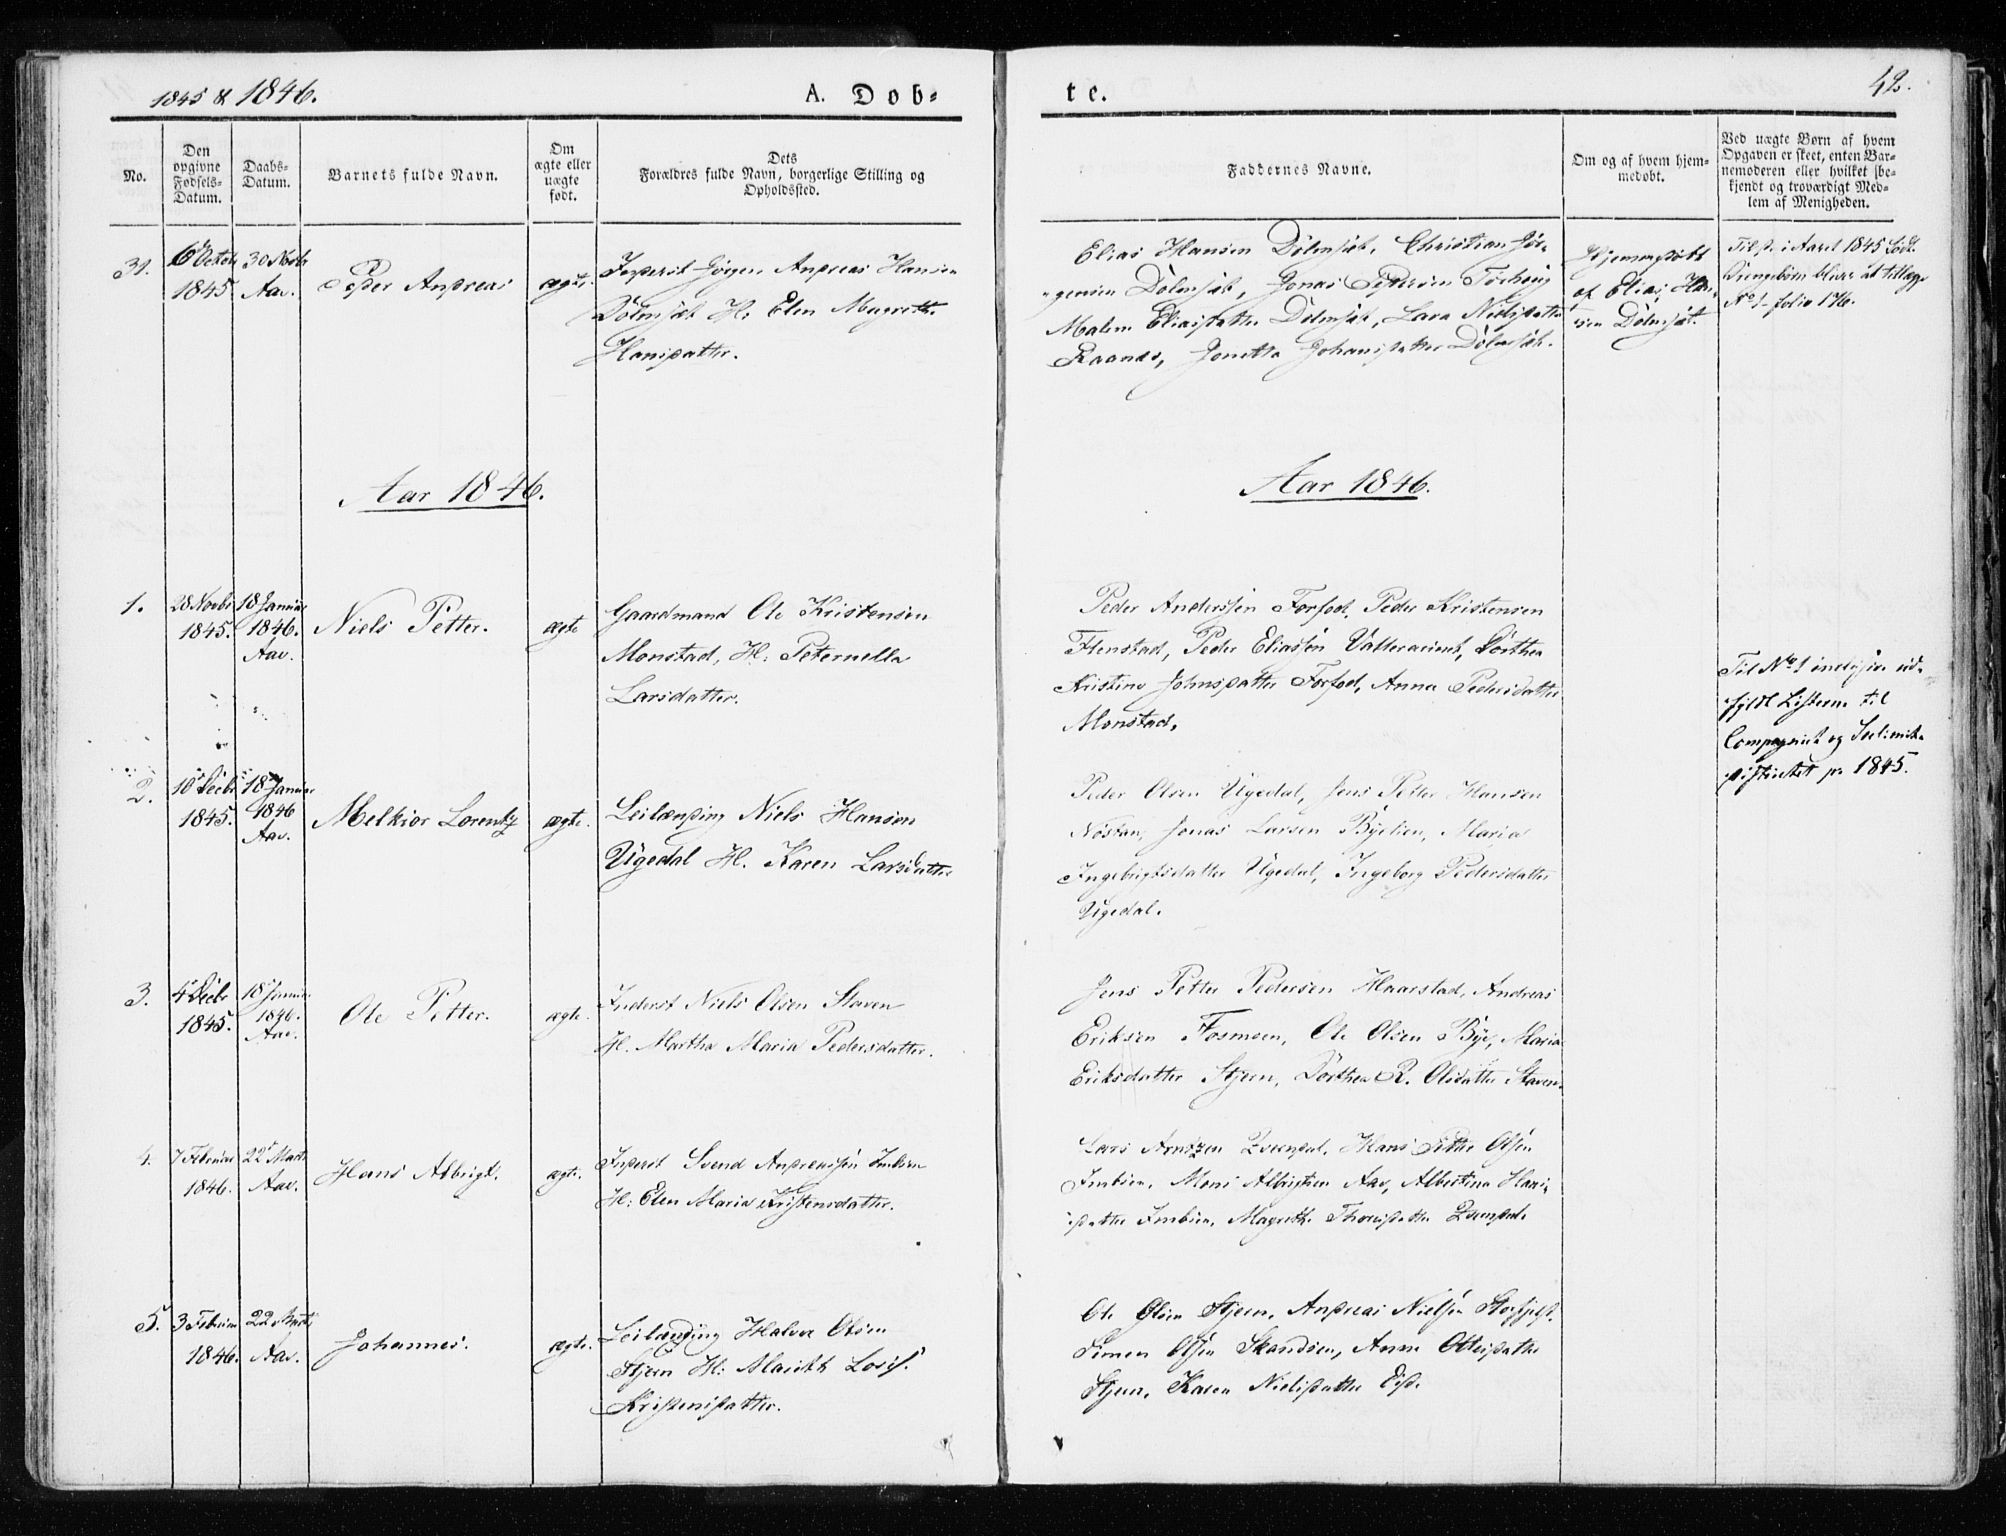 1845 & 1846.
A. Dob-
te.
42.
No.
Den opgivne Fødsels-Datum.
Daabs-Datum.
Barnets fulde Navn.
Om ægte eller uægte født.
Dets Forældres fulde Navn, borgerlige Stilling og Opholdssted.
Faddernes Navne.
Om og af hvem hjemmedøbt.
Ved uægte Børn af hvem Opgaven er skeet, enten Barnemoderen eller hvilket bekjendt og troværdigt Medlem af Menigheden.
31.
6 Octob
1845.
30 Novbr
Aav.
Peder Andreas
ægte.
Inderst Jørgen Andreas Hansen
Dølmsøt H: Elen Magrethe
Hansdatter.
Elias Hansen Dølmsøt, Christian Jør-
gensen Dølmsøt, Jonas Pettersen
Malene Eliasdatter Dølmsøt, Lava Nielsdatter
Raanes, Jonetta Johansdatter Dølmsøt.
Hjemmedøbt
af Elias Han-
sen Dølmsøt.
Tilst. i Aaret 1845 født
Drengebørn bliver at tillægge
No 1 folio 176.
Aar 1846.
Aar 1846.
1.
28 Novbr
1845.
18 Januar
1846.
Aav.
Niels Petter.
ægte
Gaardmand Ole Kristensen
Monstad, H: Peternella
Larsdatter.
Peder Anderssen Forfod, Peder Kristensen
Flenstad, Peder Eliassen Dørthea
Kristine Johnsdatter Forfod, Anna Pedersdatter
Monstad.
Til No 1 inclusive ud-
fyldt Listerne til
Compagniet og
districtet pr 1845.
2.
10 Decbr
1845.
18 Januar
1846
Aav.
Melkior Lorentz
ægte.
Leilænding Niels Hansen
Ugedal H. Karen Larsdatter
Peder Olsen Ugedal, Jens Petter Hansen
Nøstan, Jonas Larsen Byelien, Maria
Ingebrigtsdatter Ugedal, Ingeborg Pedersdatter
Ugedal.
3.
4 Decbr
1845.
18 Januar
1846.
Aav.
Ole Petter.
ægte.
Inderst Niels Olsen Staven
H. Martha Maria Pedersdatter.
Jens Petter Pedersen Haarstad, Andreas
Eriksen Fosmoen, Ole Olsen Bye, Maria
Eriksdatter Stjern, Dorthea R. Olsdatter Staven.
4.
7 Februar
1846.
22 Marts
Aav.
Hans Albrigt.
ægte.
Inderst Svend Andreassen Imbsen
H: Elen Maria Kristensdatter.
Lars Arntzen Hans Petter Olsen
Imbsen, Mons Albrigtsen Aav, Albertina Hans-
datter Imbsen, Magrethe
5.
3 Februar
1846.
22 Marts
Aav.
Johannes.
ægte.
Leilænding Halvor Olsen
Stjern H: Marith Lovise
Kristensdatter.
Ole Olsen Stjern, Andreas Nielsen
Simen Olsen Skandsen, Anne Ottesdatter
Stjern, Karen Nielsdatter